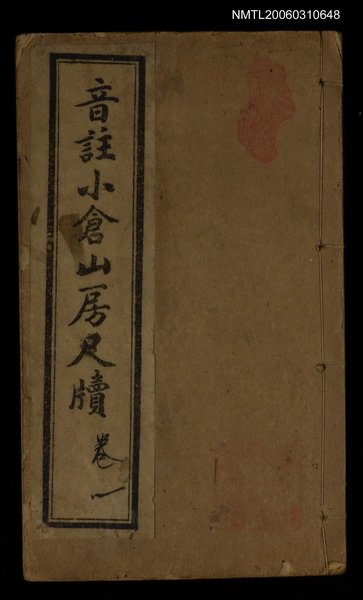 NMTL20060310648
音註小倉山房尺牘
卷一